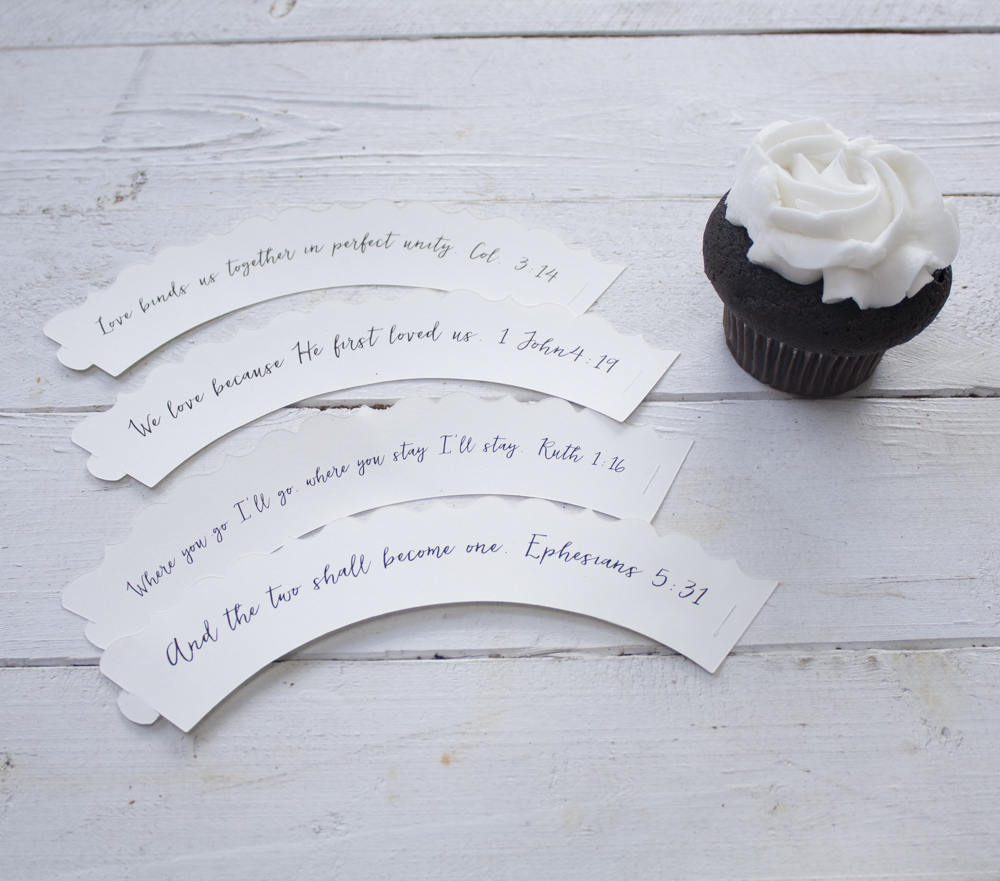 Love binds us together in perfect unity. Col. 3:14
We love because He first loved us. 1 John 4:19
Where you go I'll go, where you stay I'll stay. Ruth 1:16
And the two shall become one. Ephesians 5:31